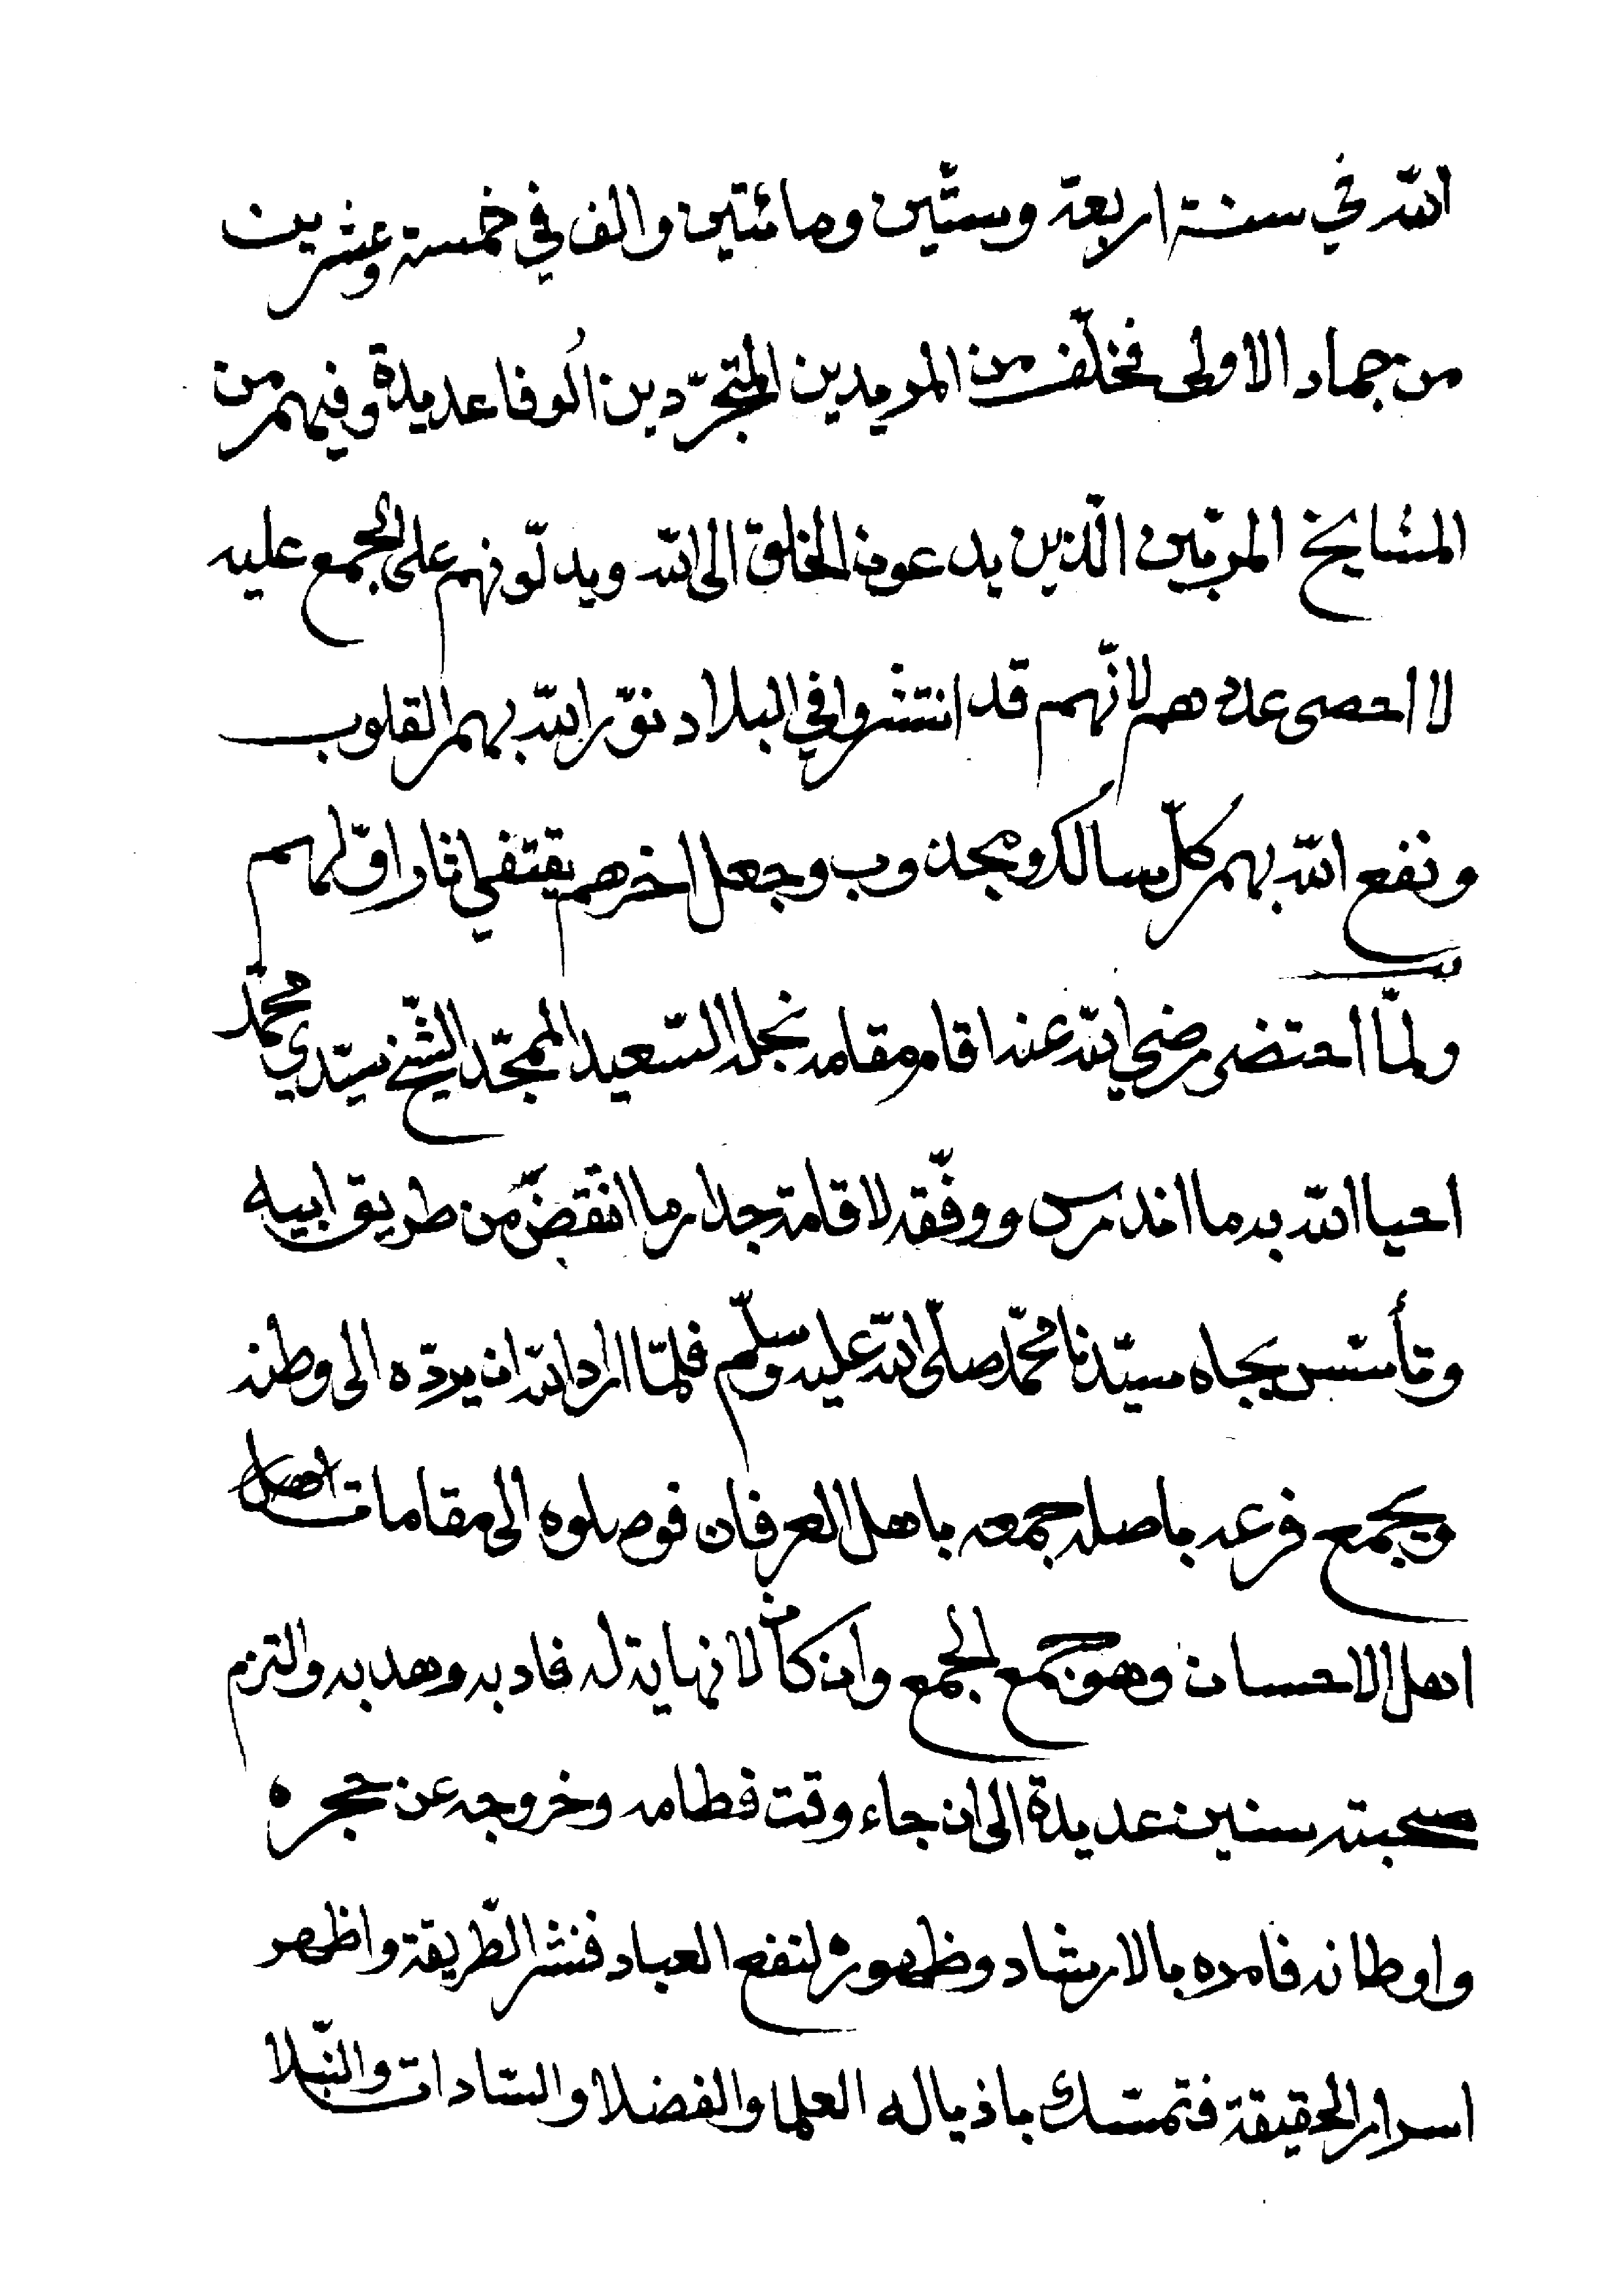 الله في سنة اربعة وستّين ومائتين والف في خمسة وعشرين
من جماد الاولى فخلّف من المريدين المتجرّدين الُوفا عديدة وفيهم من
المشايخ المربّين الّذين يدعون الخلق الى الله ويدلّونهم على الجمع عليه
لا احصى عددهم لانّهم قد انتشروا في البلاد نوّر الله بهم القلوب
ونفع الله بهم كلّ سالك ومجذوب وجعل اخرهم يقتفي اثار اوّلهم
ولمّا احتضر رضي الله عنه اقام مقامه نجله السّعيد الممجّد الشّيخ سيّدي محمّد
احيا الله به ما اندرس ووفّقه لاقامة جدار ما انقضّ من طريق ابيه
وتأسّس بجاه سيّدنا محمّد صلّى الله عليه وسلّم فلمّا اراد الله ان يردّه الى وطنه
ويجمع فرعه باصله جمعه باهل العرفان فوصلوه الى مقامات
اهل الاحسان وهو جمع الجمع وان كان لا نهاية له فادبه وهدبه والتزم
صحبته سنين عديدة الى ان جاء وقت فطامه وخروجه عن حجره
واوطانه فامره بالارشاد وظهوره لنفع العباد فنشر الطّريقة واظهر
اسرار الحقيقة فتمسّك باذياله العلما والفضلا والسّادات والنّبلا